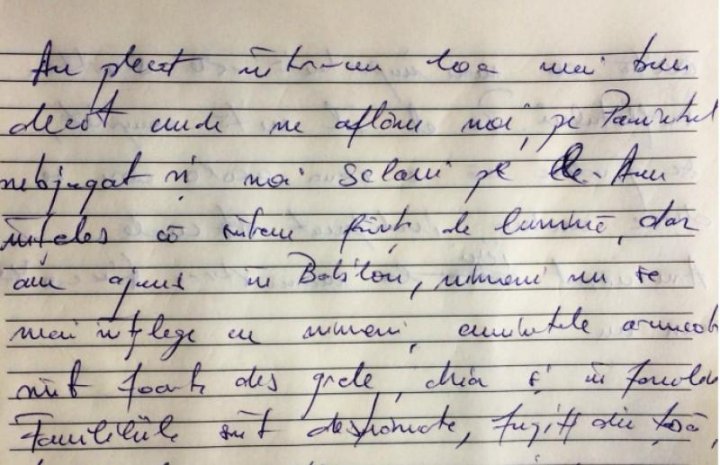 Au plecat într-un loc mai bun
decât unde ne aflăm noi, pe Pământul
subjugat și noi sclavi pe el. Am
înțeles că suntem ființe de lumină, dar
am ajuns în Babilon, nimeni nu se
mai înțelege cu nimeni, cuvintele aruncate
sunt foarte des grele, chiar și în familii
Familiile sunt destrămate, fugiți din țară,